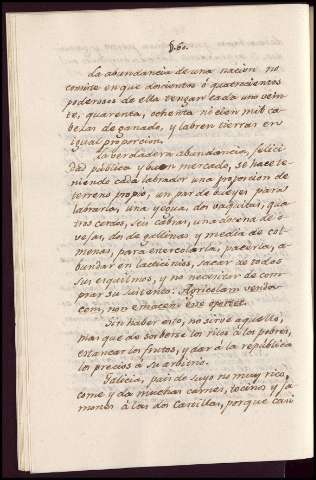 §. 60.
La abundancia de una nacion no
consiste en que docientos ó quatrocientos
poderosos de ella tengan cada uno vein-
te, quarenta, ochenta ni cien mil ca-
bezas de ganado, y labren tierras en
igual proporcion.
La verdadera abundancia, felici-
dad publica y buen mercado, se hace te-
niendo cada labrador una porcion de
terreno propio, un par de bueyes para
labrarlo, una yegua, dos vaquitas, qua-
tro cerdos, seis cabras, una docena de o-
vejas, dos de gallinas y media de col-
menas, para estercolarla, pacerla, a-
bundar en lacticinios, sacar de todos
sus esquilmos, y no necesitar de com-
prar su sustento. Agricolam vendà-
cem, non emacem esse oportet.
Sin haber esto, no sirve aquello,
mas que de sorberse los ricos á los pobres,
estancar los frutos, y dar á la república
los precios á su arbitrio.
Galicia, pais de suyo no muy rico,
come y da muchas carnes, tocinos y ja-
mones á las dos Castillas, porque casi